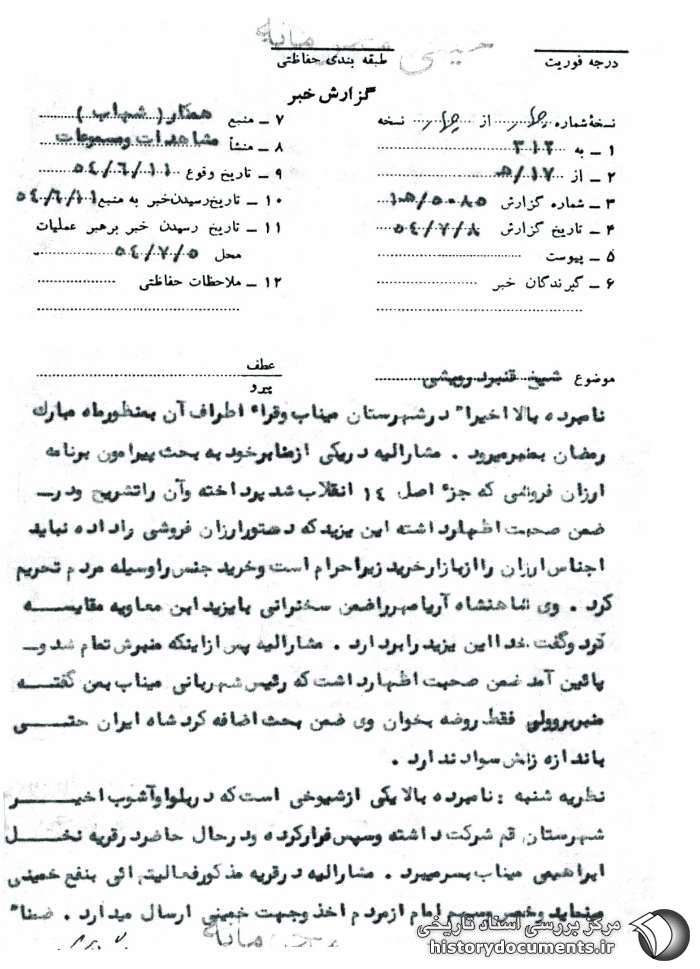 درجه فوریت
طبقه بندی حفاظتی
گزارش خبر
نسخهٔ شماره از نسخه
۱ ــ به ۳۱۲
۲ ــ از ۱۷/ه
۳ ــ شماره گزارش ۱۰ه/۵۰۸۵
۴ ــ تاریخ گزارش ۵۴/۷/۸
۵ ــ پیوست
۶ ــ گیرندگان خبر
۷ ــ منبع همکار ( شهاب )
۸ ــ منشأ مشاهدات ومسموعات
۹ ــ تاریخ وقوع ۵۴/۶/۱۱
۱۰ ــ تاریخ رسیدن خبر به منبع ۵۴/۶/۱۱
۱۱ ــ تاریخ رسیدن خبر برهبر عملیات
محل ۵۴/۷/۵
۱۲ ــ ملاحظات حفاظتی
موضوع شیخ قنبردرویشی
عطف
پیرو
نامبرده بالا اخیرا" درشهرستان میناب وقراء اطراف آن بمنظورماه مبارک
رمضان بمنبرمیرود . مشارالیه دریکی ازمنابرخود به بحث پیرامون برنامه
ارزان فروشی که جزء اصل ۱۴ انقلاب شد پرداخته وآن راتشریح ودر
ضمن صحبت اظهارداشته این یزید که دستورارزان فروشی راداده نباید
اجناس ارزان راازبازارخرید زیراحرام است وخرید جنس راوسیله مردم تحریم
کرد . وی شاهنشاه آریامهرراضمن سخنرانی بایزید ابن معاویه مقایسه
کرد وگفت خدااین یزید رابردارد . مشارالیه پس ازاینکه منبرش تمام شد و
پائین آمد ضمن صحبت اظهارداشت که رئیس شهربانی میناب بمن گفته
منبربروولی فقط روضه بخوان وی ضمن بحث اضافه کرد شاه ایران حتی
باندازه زنش سواد ندارد .
نظریه شنبه : نامبرده بالا یکی ازشیوخی است که دربلوا وآشوب اخیر
شهرستان قم شرکت داشته وسپس فرارکرده ودرحال حاضردرقریه نخل
ابراهیمی میناب بسرمیبرد . مشارالیه درقریه مذکورفعالیتهائی بنفع خمینی
مینماید وخمس وسهم امام ازمردم اخذ وجهت خمینی ارسال میدارد . ضمنا"
مرکز بررسی اسناد تاریخی
historydocuments.ir